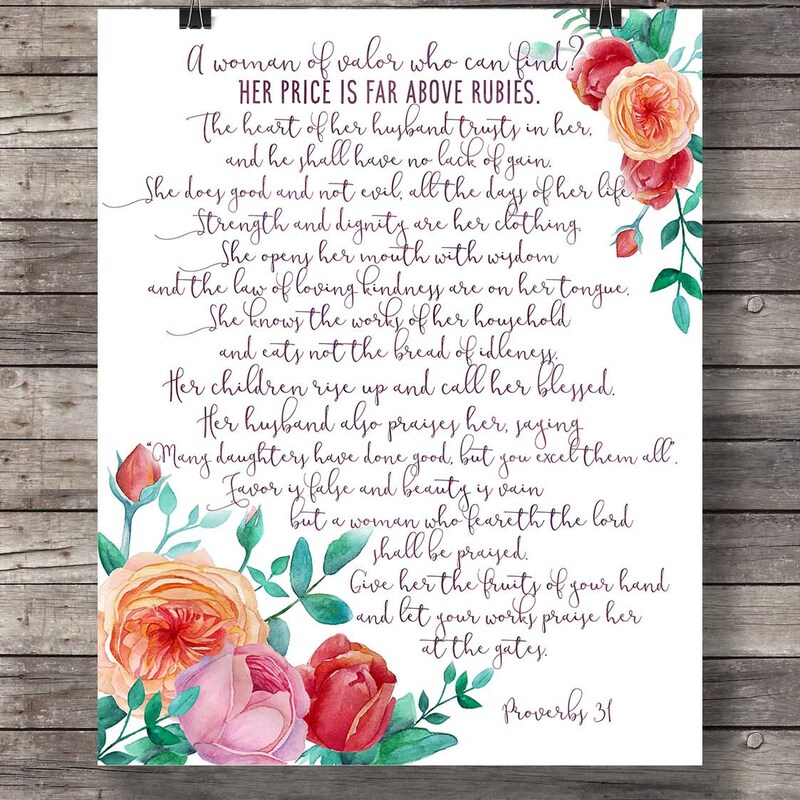 A woman of valor who can find?
HER PRICE IS FAR ABOVE RUBIES.
The heart of her husband trusts in her,
and he shall have no lack of gain.
She does good and not evil, all the days of her life.
Strength and dignity are her clothing.
She opens her mouth with wisdom
and the law of loving kindness are on her tongue.
She knows the works of her household
and eats not the bread of idleness.
Her children rise up and call her blessed.
Her husband also praises her, saying
"Many daughters have done good, but you excel them all".
Favor is false and beauty is vain
but a woman who feareth the lord
shall be praised.
Give her the fruits of your hand
and let your works praise her
at the gates.
Proverbs 31